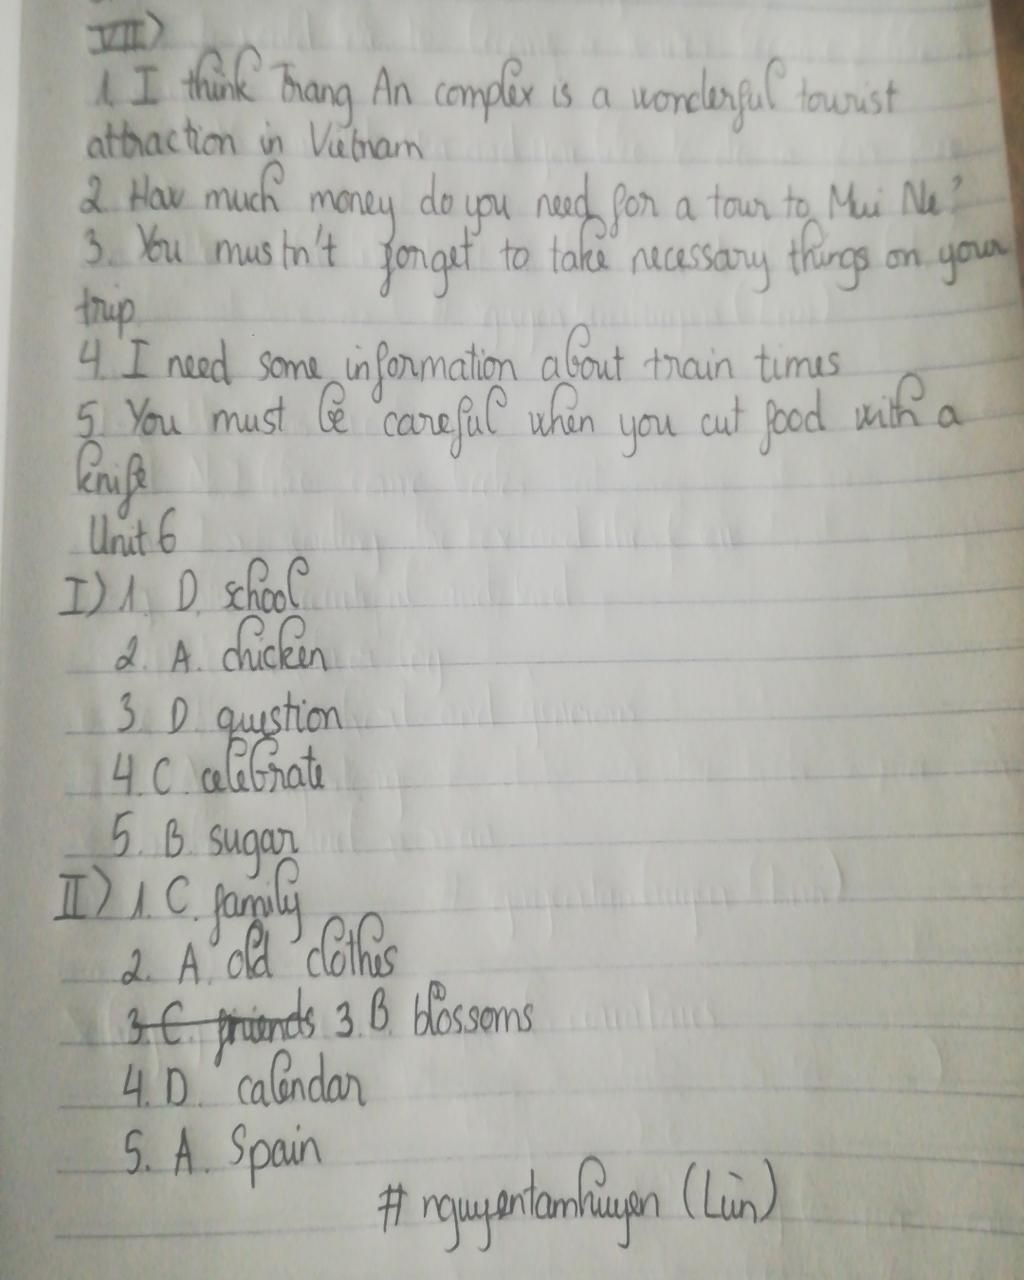 VII)
1. I think Trang An complex is a wonderful tourist
attraction in Vietnam
2. How much money do you need for a tour to Mui Ne?
3. You mustn't forget to take necessary things on your
trip
4. I need some information about train times
5. You must be careful when you cut food with a
knife
Unit 6
I) 1. D. school
2. A. chicken
3. D. question
4. C. celebrate
5. B. sugar
II) 1. C. family
2. A. old clothes
3. C. friends 3. B. blossoms
4. D. calendar
5. A. Spain
# nguyentamhuyen (Lùn)